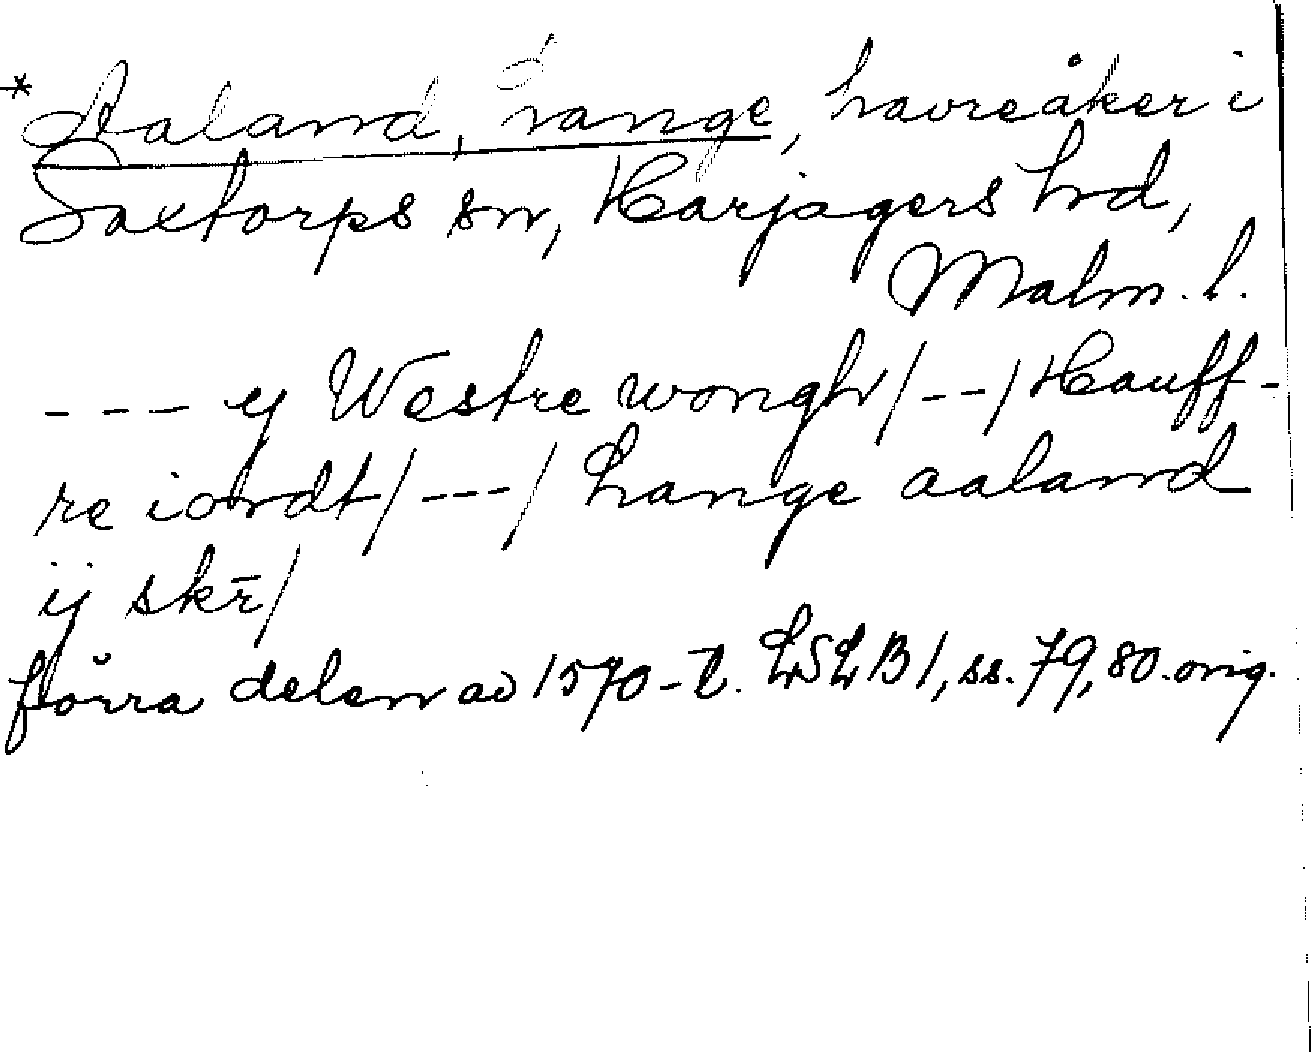 * Aaland, Lange, havreåker i
Saxtorps sn, Harjagers hd,
Malm. l.
- - - y Westre wongh/ - - / Hauff-
re iordt/ - - - / Lange aaland
ij skr̄/
förra delen av 1570-t. LSLB 1, ss. 79, 80. orig.